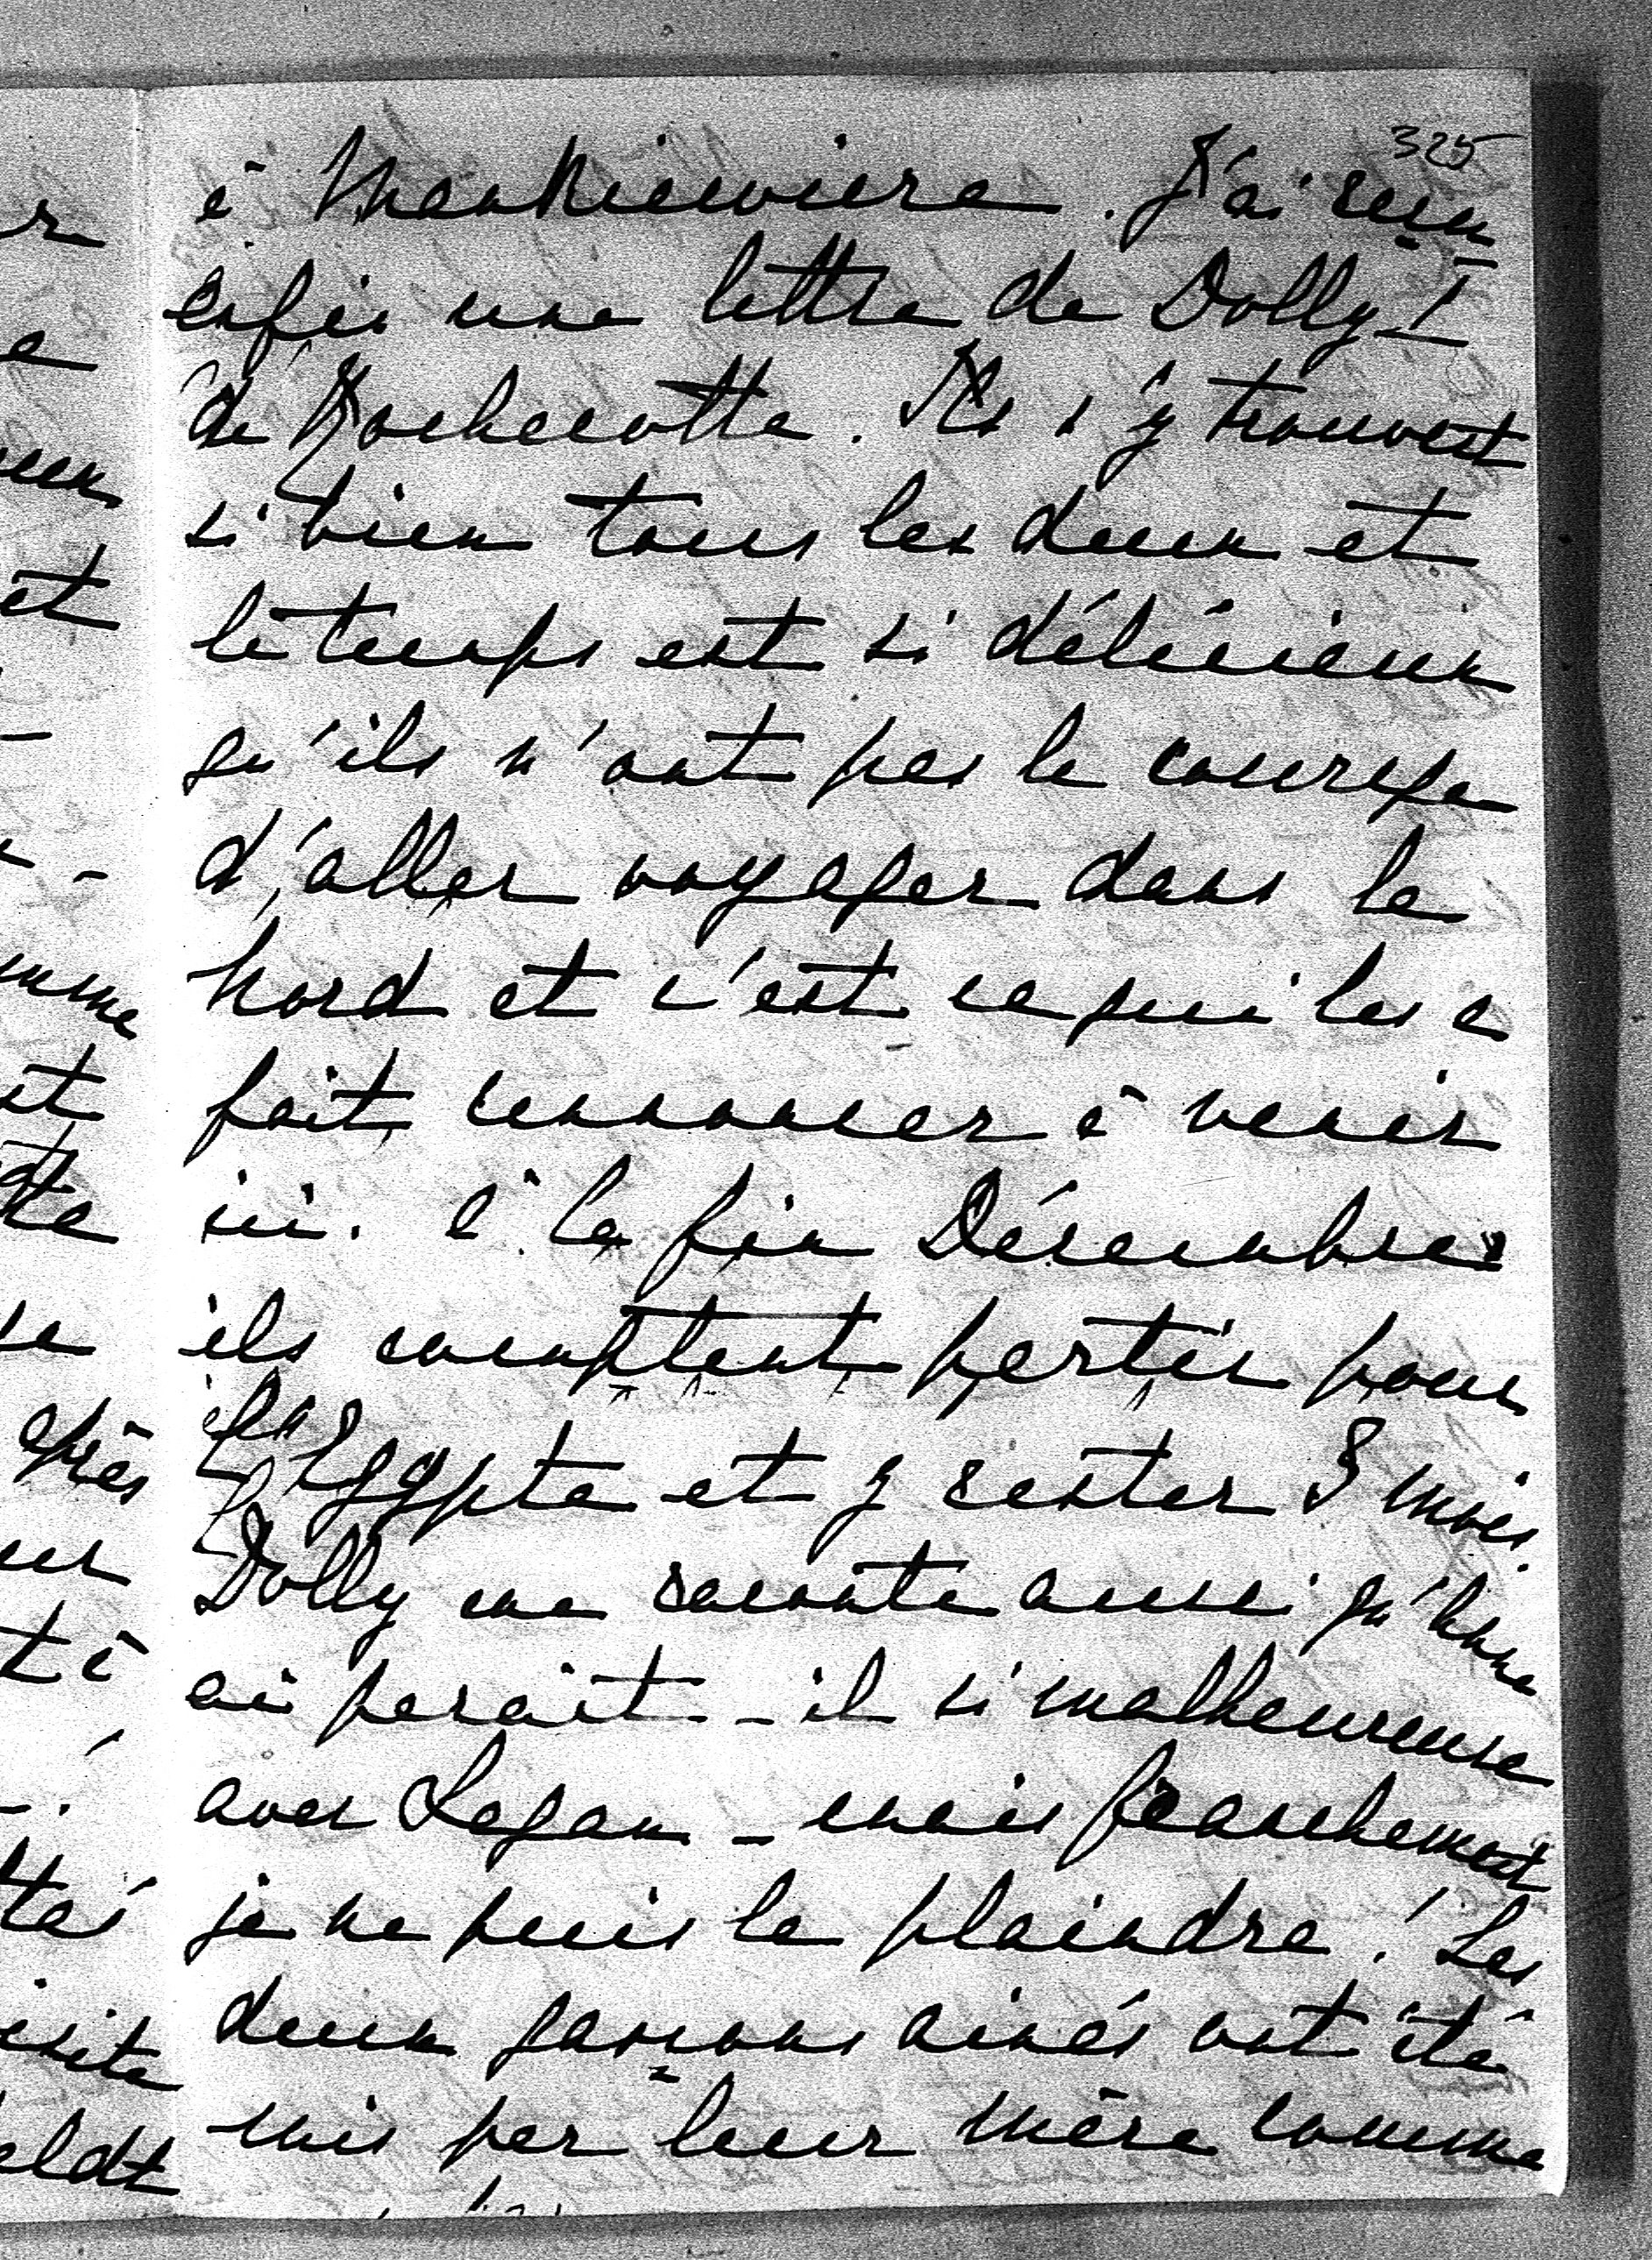 325
à Mankiewicza. J'ai reçu
enfin une lettre de Dolly !
de Rochecotte. Ils s'y trouvent
si bien tous les deux et
le temps est si délicieux
qu'ils n'ont pas le courage
d'aller voyager dans le
Nord et c'est ce qui les a
fait renoncer à venir
ici. à la fin Décembre
ils comptent partir pour
l'Egypte et y rester 3 mois.
Dolly me raconte aussi qu'
ai parait-il si malheureuse
avec Lagan - mais franchement
je ne puis la plaindre ! Les
deux garçons ainés ont été
mis par leur mère comme
r
e
et
-
-
mme
et
te
après
ur
t à
-.
té
isite
eldt